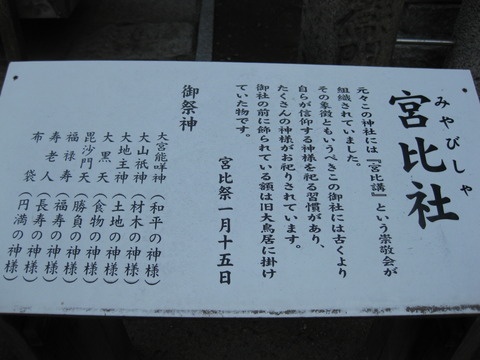 宮比社
みやびしゃ
元々この神社には『宮比講』という崇敬会が
組織されていました。
その象徴ともいうべきこの御社には古くより
自らが信仰する神様を祀る習慣があり、
たくさんの神様がお祀りされています。
御社の前に飾られている額は旧大鳥居に掛け
ていた物です。
宮比祭一月十五日
御祭神
大宮能咩神（和平の神様）
大山祇神（材木の神様）
大地主神（土地の神様）
大黒天（食物の神様）
毘沙門天（勝負の神様）
福禄寿（福寿の神様）
寿老人（長寿の神様）
布袋（円満の神様）